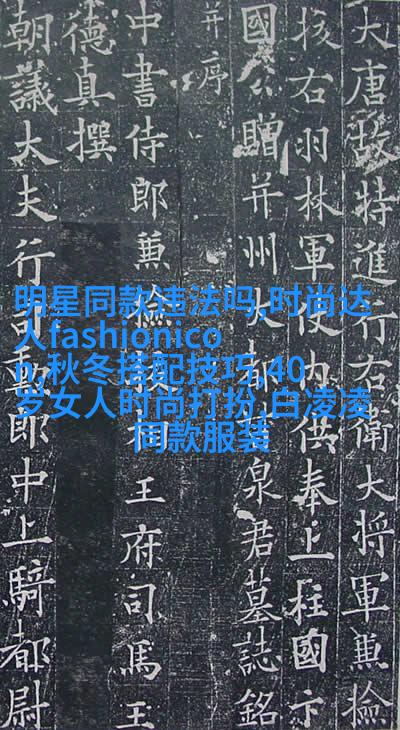 大唐故特進行右衛大將軍兼撿
挍右羽林軍仗內供奉上柱國卞
國公贈并州大都督泉君墓誌銘
并序
中書侍郎兼撿挍相王府司馬王
德真撰
朝議大夫行司勳郎中上騎都尉
明星同款违法吗,时尚达
人fashionico
n,秋冬搭配技巧,40
岁女人时尚打扮,白凌凌
同款服装